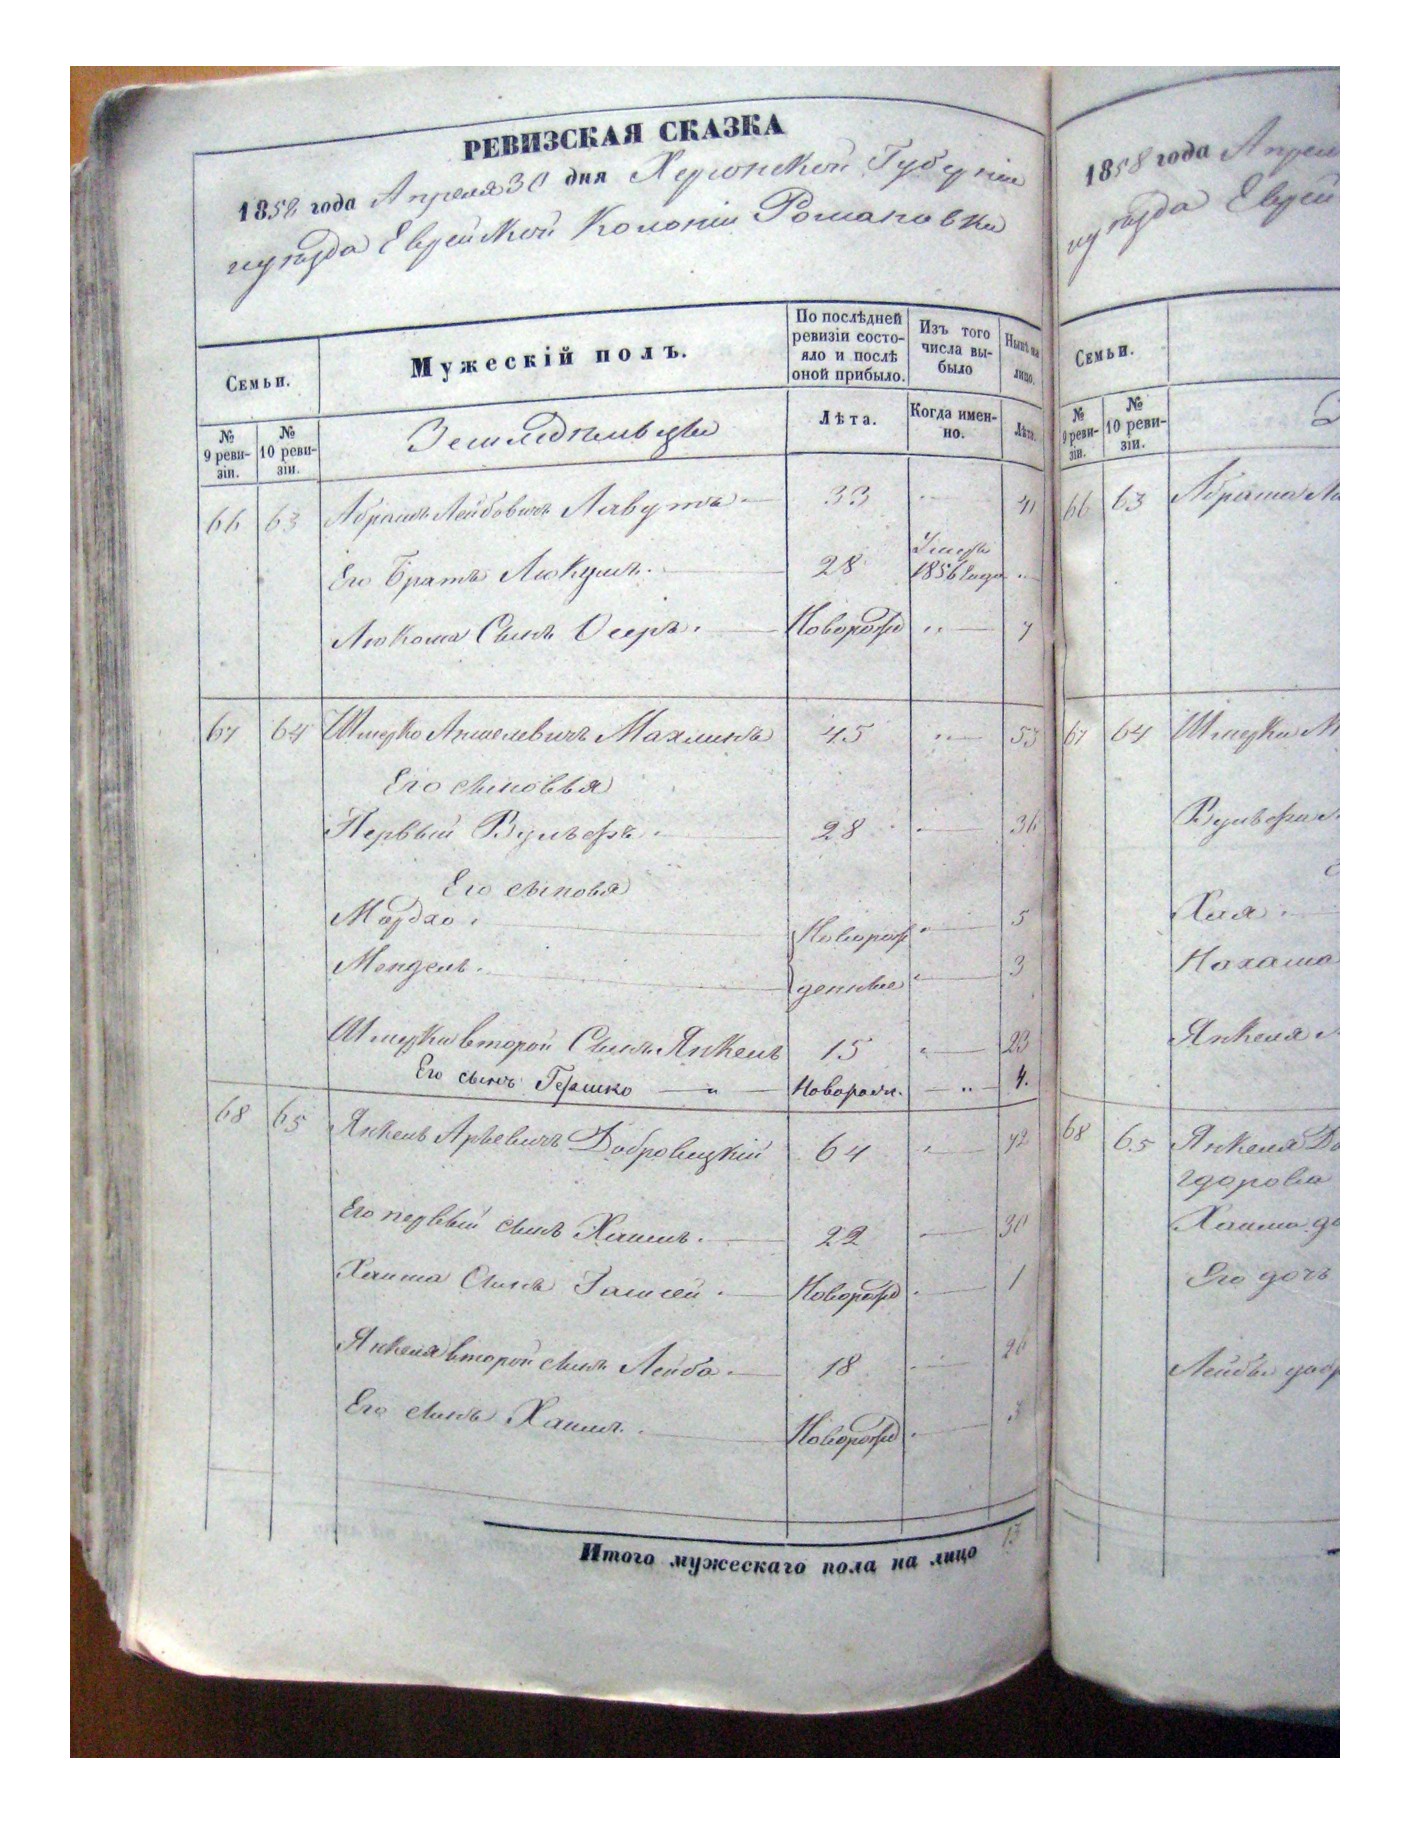 РЕВИЗСКАЯ СКАЗКА
1858 года Апреля 30 дня Херсонской Губерніи
уѣзда Еврейской Колоніи Романовки
Семьи.
Мужескій полъ.
По послѣдней ревизіи состо-яло и послѣ оной прибыло.
Изъ того числа вы-было
Нынѣ на лицо.
№ 9 реви-зіи.
№ 10 реви-зіи.
Земледѣльцы
Лѣта.
Когда имен-но.
Лѣта.
66 63 Абрамъ Лейбовичъ Лавутъ 33 41
Его Братъ Люкумъ. 28 Умеръ 1856 года
Люкома Сынъ Осеръ. Новорожд 7
67 64 Шмерко Аншелевичъ Махлинъ 45 53
Его сыновья
Первый Вульфъ 28 36
Его сыновья
Мордхо. Новорож 5
Мендель. денные 3
Шмерки второй Сынъ Янкель 15 23
Его сынъ Гершко Новорож. 4.
68 65 Янкель Арьевичъ Добровицкій 64 72
Его первый сынъ Хаимъ. 22 30
Хаима Сынъ Новорожд 1
Янкеля второй сынъ Лейба. 18 26
Его сынъ Хаимъ. Новорожд 3
Итого мужескаго пола на лицо 13
1858 года Апреля
уѣзда Еврей
Семьи.
№ 9 реви-зіи.
№ 10 реви-зіи.
66 63 Абрама
67 64 Шмерки
Вульфа
Хая
Нахама
Янкеля
68 65 Янкеля До
Хаима до
Его дочь
Лейбы